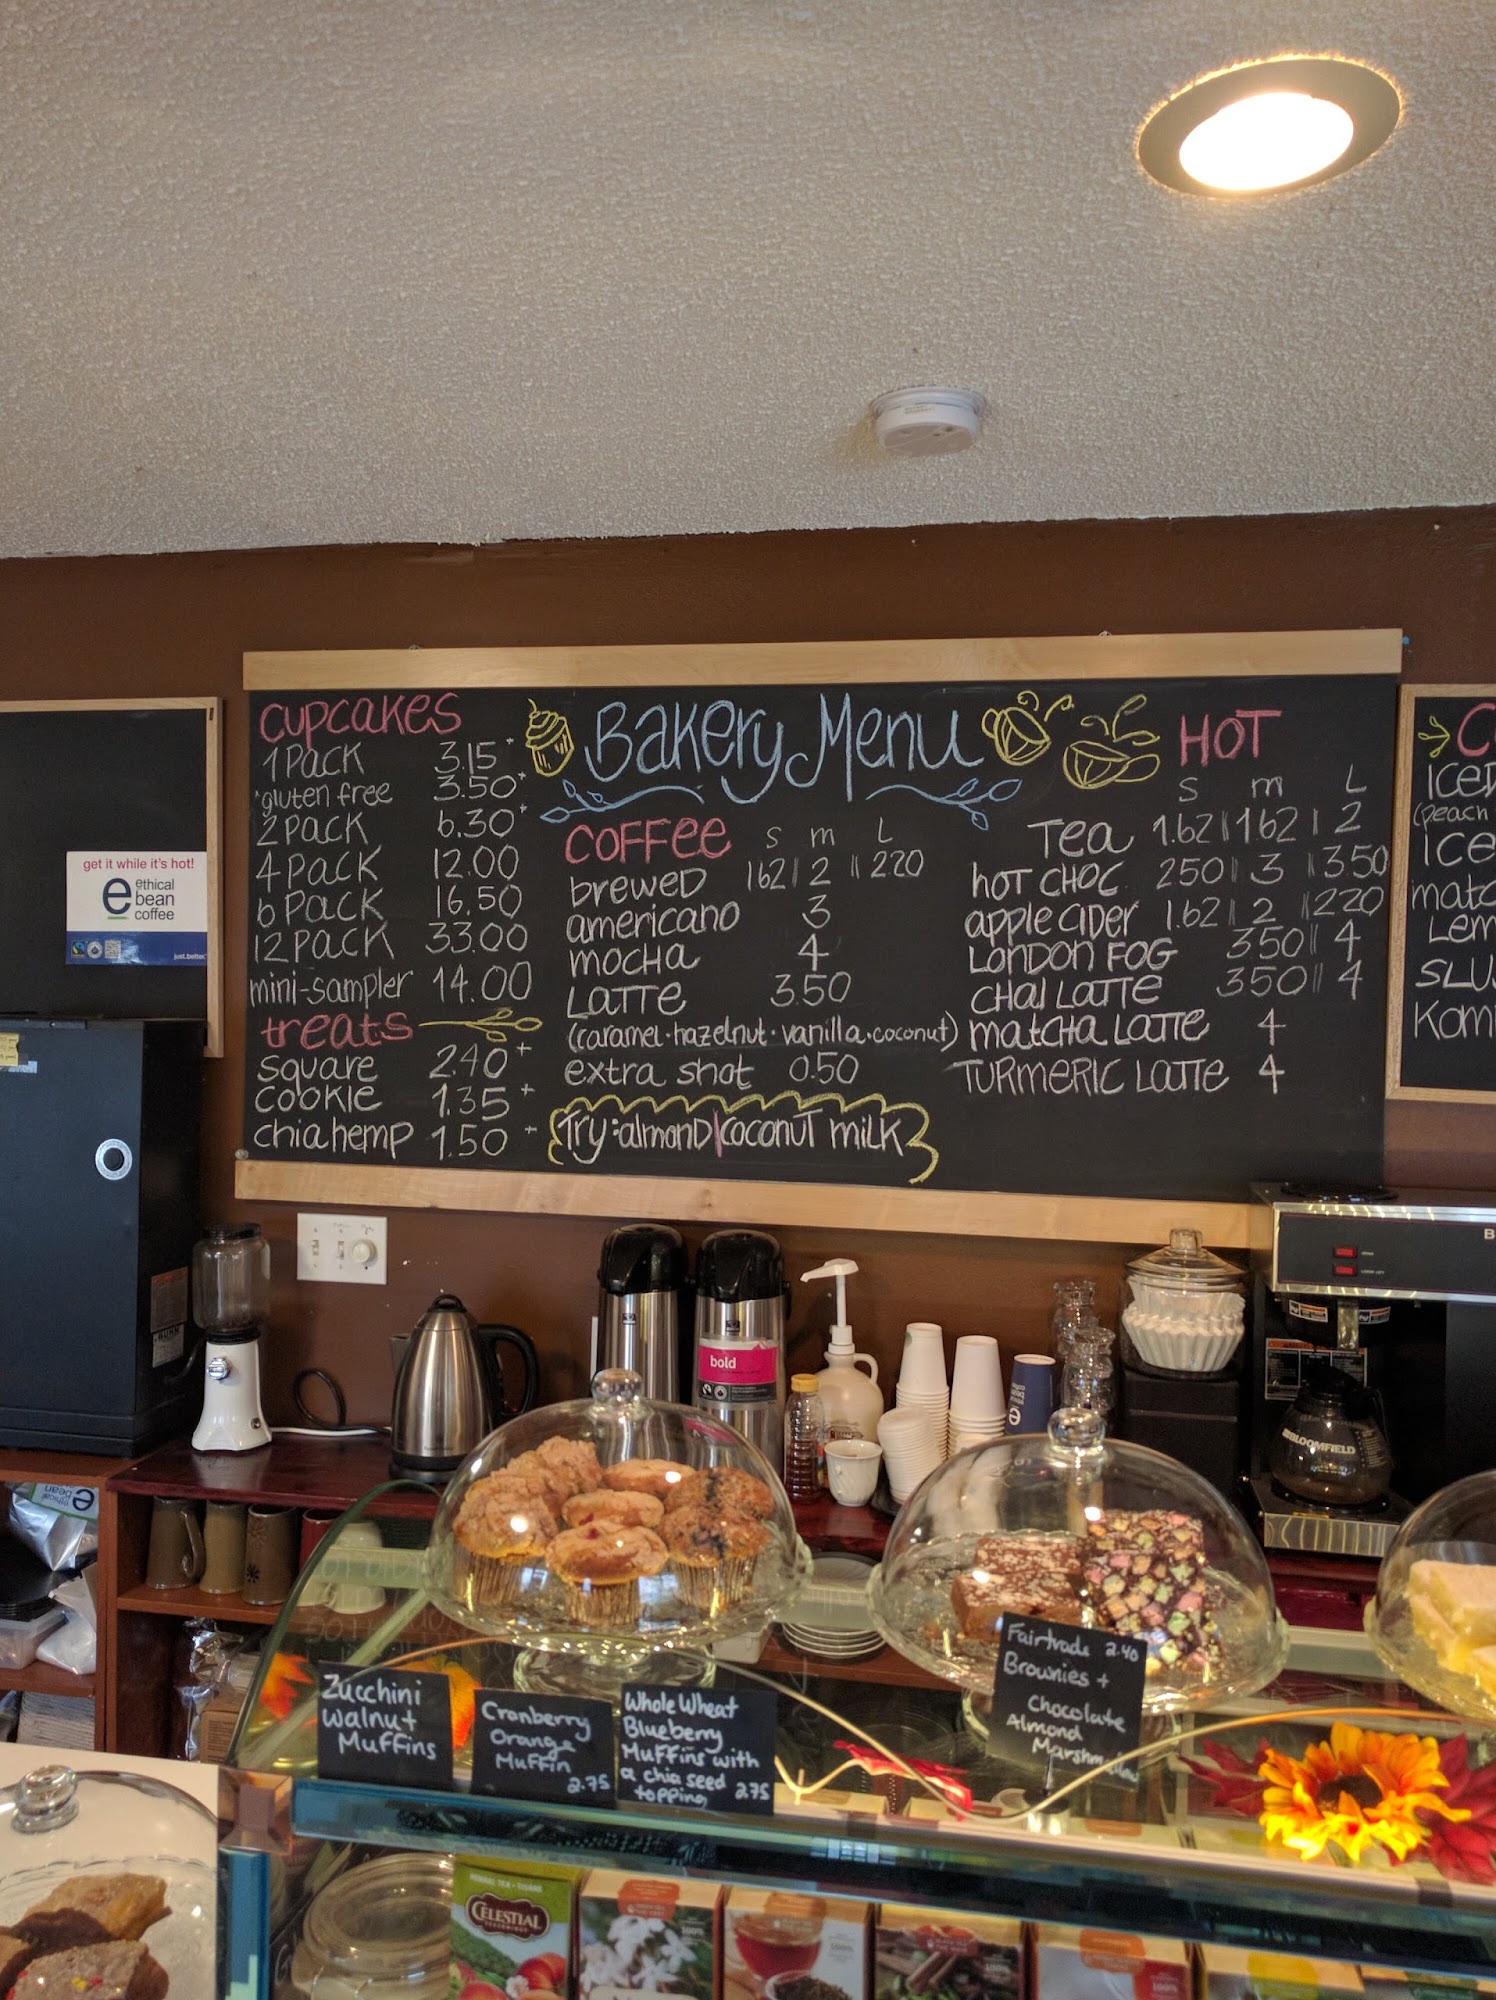 CUPCAKES
1 PACK 3.15+
*gluten free 3.50+
2 PACK 6.30+
4 PACK 12.00
6 PACK 16.50
12 PACK 33.00
mini-sampler 14.00
treats
square 2.40+
COOKIE 1.35+
chia hemp 1.50+
Bakery Menu
COFFEE S m L
brewed 162 | 2 || 220
americano 3
mocha 4
LATTE 3.50
(caramel·hazelnut·vanilla·coconut)
extra shot 0.50
Try: almond | coconut milk
HOT
S m L
Tea 1.62 || 162 | 2
hot choc. 250 || 3 || 3.50
apple cider 1.62 || 2 || 220
LONDON FOG 350 || 4
CHAI LATTE 350 || 4
matcha LATTE 4
TURMERIC LATTE 4
ICED
(peach
ICE
LEM
SLUS
Kom
get it while it's hot!
e ethical
bean
coffee
just.better.
bold
BLOOMFIELD
Zucchini
Walnut
Muffins
Cranberry
Orange
Muffin
2.75
Whole Wheat
Blueberry
Muffins with
a chia seed
topping 2.75
Fairtrade 2.40
Brownies +
Chocolate
Almond
Marshmallow
CELESTIAL
100%
100%